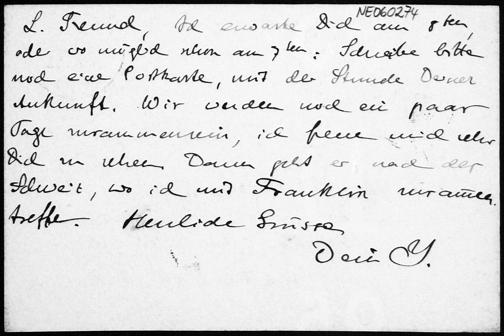 NE060274
L. Freund, Ich erwarte Dich am 8ten,
oder wo möglich schon am 7ten: Schreibe bitte
noch eine Postkarte, mit der Stunde Deiner
Ankunft. Wir werden noch ein paar
Tage zusammensein, ich freue mich sehr
Dich zu sehen. Dann geht er nach der
Schweiz, wo ich mit Franklin zusammen-
treffe. Herzliche Grüsse
Dein Y.